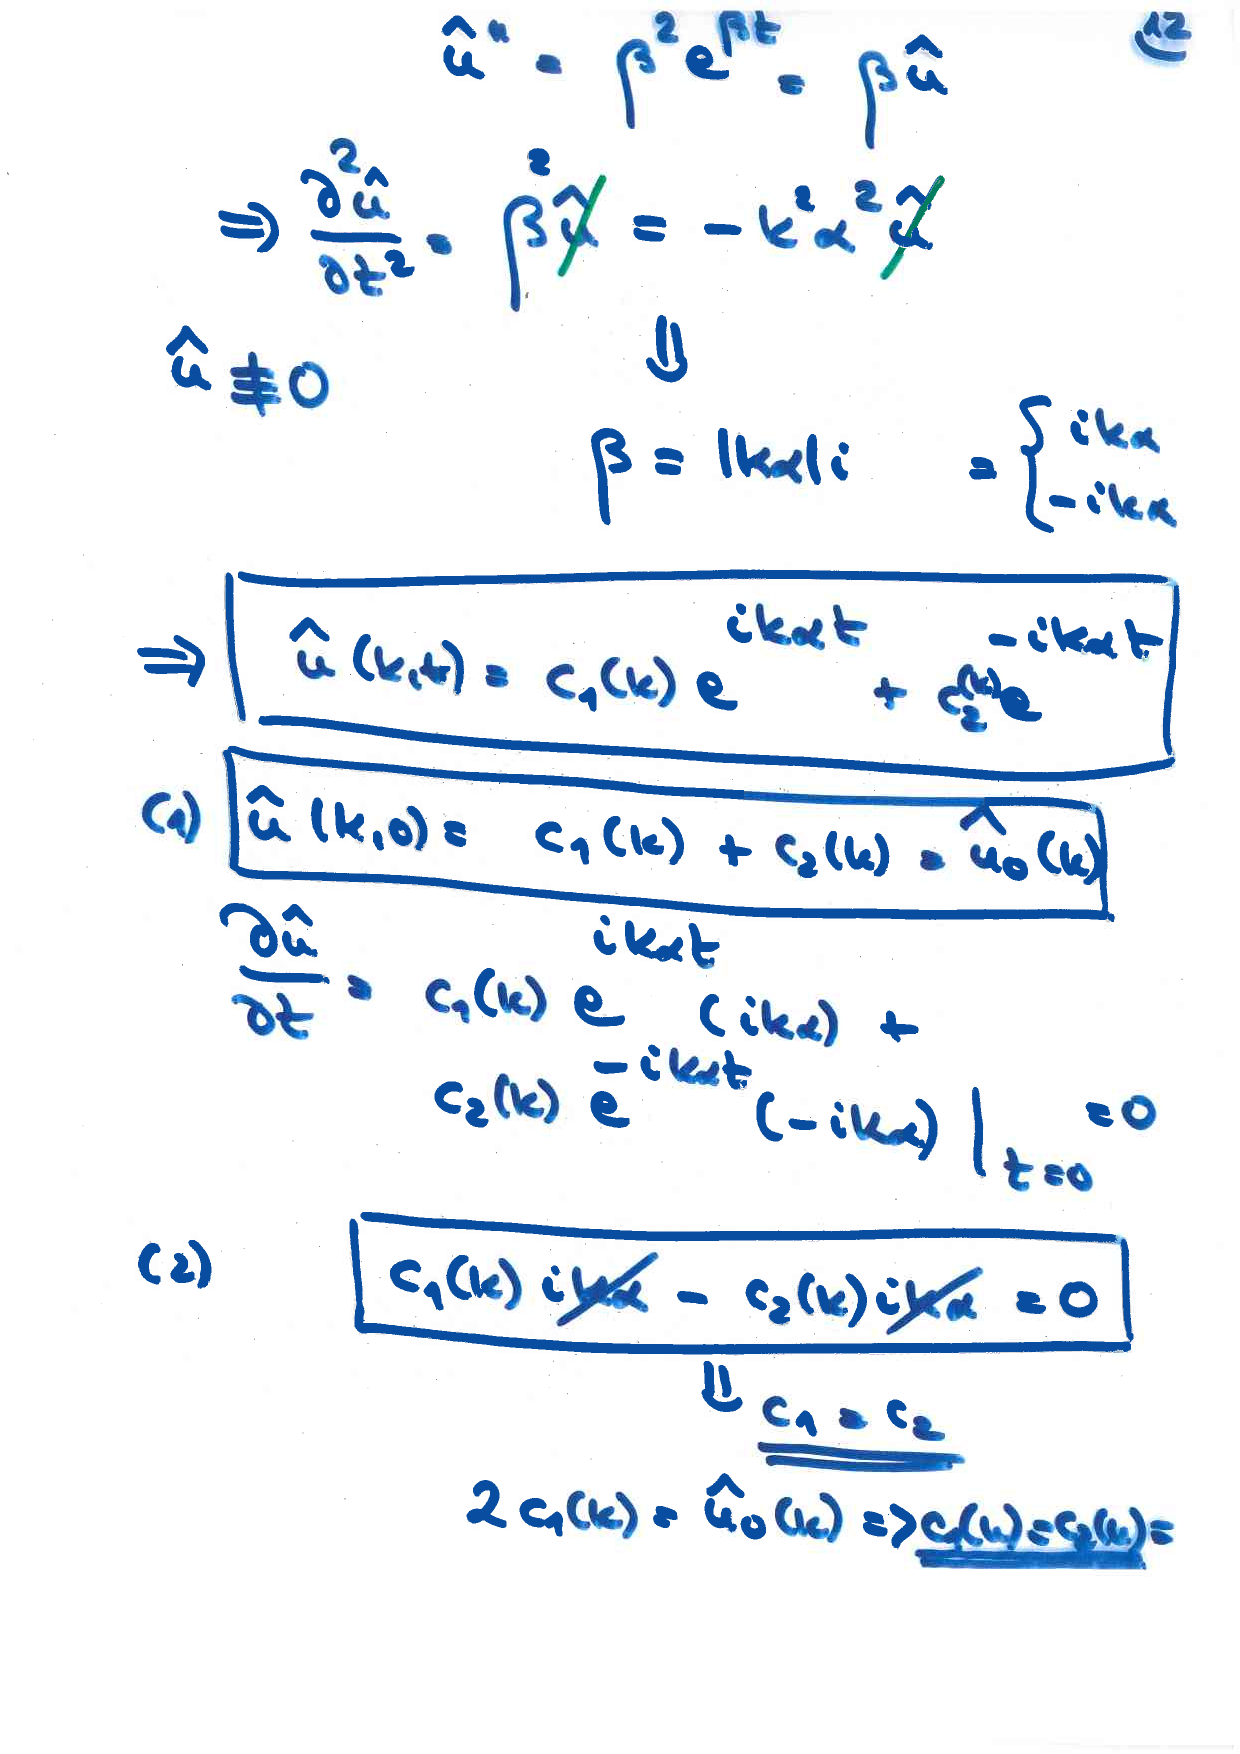 12
û'' = β² e^{βt} = β û
⇒ ∂²û/∂t² = β² û = - k² α² û
⇓
û ≢ 0
β = |kα| i = { ikα
- ikα
⇒ û (k,t) = c₁(k) e^{ikαt} + c₂(k) e^{-ikαt}
(1) û (k,0) = c₁(k) + c₂(k) = û₀(k)
∂û/∂t = c₁(k) e^{ikαt} (ikα) +
c₂(k) e^{-ikαt} (-ikα) |_{t=0} = 0
(2) c₁(k) ikα - c₂(k) ikα = 0
⇓ c₁ = c₂
2 c₁(k) = û₀(k) => c₁(k) = c₂(k) =